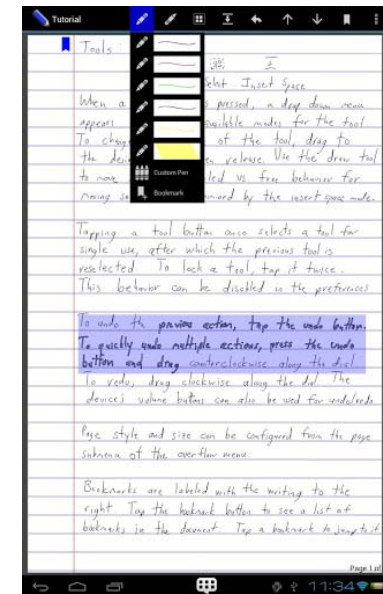 Tutorial
Tools:
Select Insert Space
When a pressed, a drop down menu
appears available modes for the tool.
To change of the tool, drag to
the release. Use the draw tool
to move vs free behavior for
moving by the insert space mode.
Tapping a tool button once selects a tool for
single use, after which the previous tool is
reselected To lock a tool, tap it twice.
This behavior can be disabled in the preferences
To undo the previous action, tap the undo button.
To quickly undo multiple actions, press the undo
button and drag counterclockwise along the dial.
To redo, drag clockwise along the dial. The
devices volume buttons can also be used for undo/redo
Page style and size can be configured from the page
submenu of the overflow menu.
Bookmarks are labeled with the writing to the
right Tap the bookmark button to see a list of
bookmarks in the document Tap a bookmark to jump to it
Custom Pen
Bookmark
Page 1 of
11:34